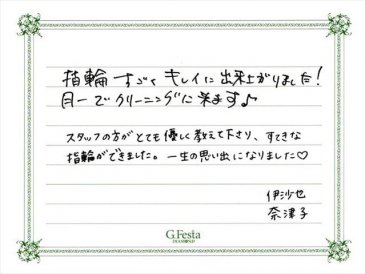 指輪すごくキレイに出来上がりました!
月一でクリーニングに来ます♪
スタッフの方がとても優しく教えて下さり、すてきな
指輪ができました。一生の思い出になりました♡
伊沙也
奈津子
G.Festa
DIAMOND